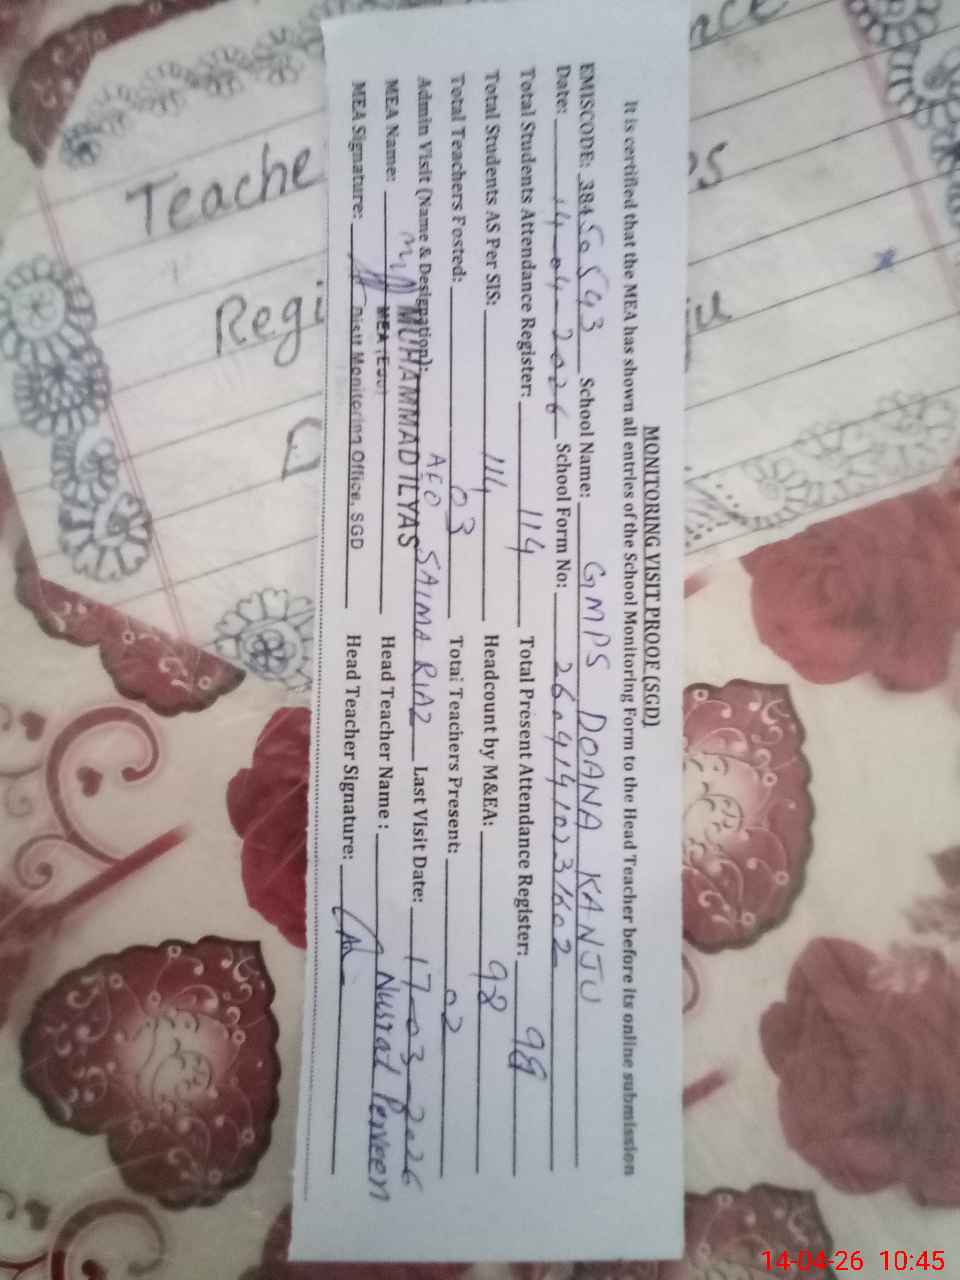 MONITORING VISIT PROOF (SGD)
It is certified that the MEA has shown all entries of the School Monitoring Form to the Head Teacher before its online submission
EMISCODE: 38450543 School Name: GMPS DOANA KANJU
Date: 14-04-2026 School Form No:
Total Students Attendance Register: 114 Total Present Attendance Register: 98
Total Students AS Per SIS: 114 Headcount by M&EA: 98
Total Teachers Posted: 03 Total Teachers Present: 02
Admin Visit (Name & Designation): AEO SAIMA RIAZ Last Visit Date: 17-03-2026
MEA Name: MUHAMMAD ILYAS Head Teacher Name : Nusrat Perveen
MEA
MEA Signature: Distt Monitoring Office, SGD Head Teacher Signature:
Teache
Regi
14-04-26 10:45